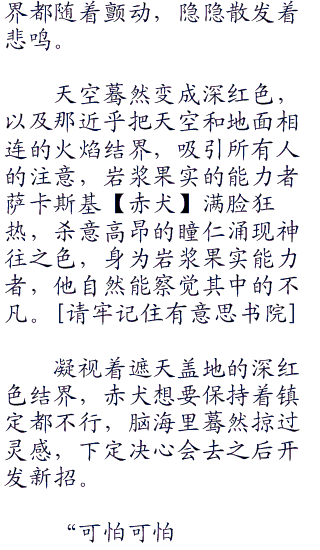 界都随着颤动，隐隐散发着
悲鸣。
天空蓦然变成深红色，
以及那近乎把天空和地面相
连的火焰结界，吸引所有人
的注意，岩浆果实的能力者
萨卡斯基【赤犬】满脸狂
热，杀意高昂的瞳仁涌现神
往之色，身为岩浆果实能力
者，他自然能察觉其中的不
凡。[请牢记住有意思书院]
凝视着遮天盖地的深红
色结界，赤犬想要保持着镇
定都不行，脑海里蓦然掠过
灵感，下定决心会去之后开
发新招。
“可怕可怕